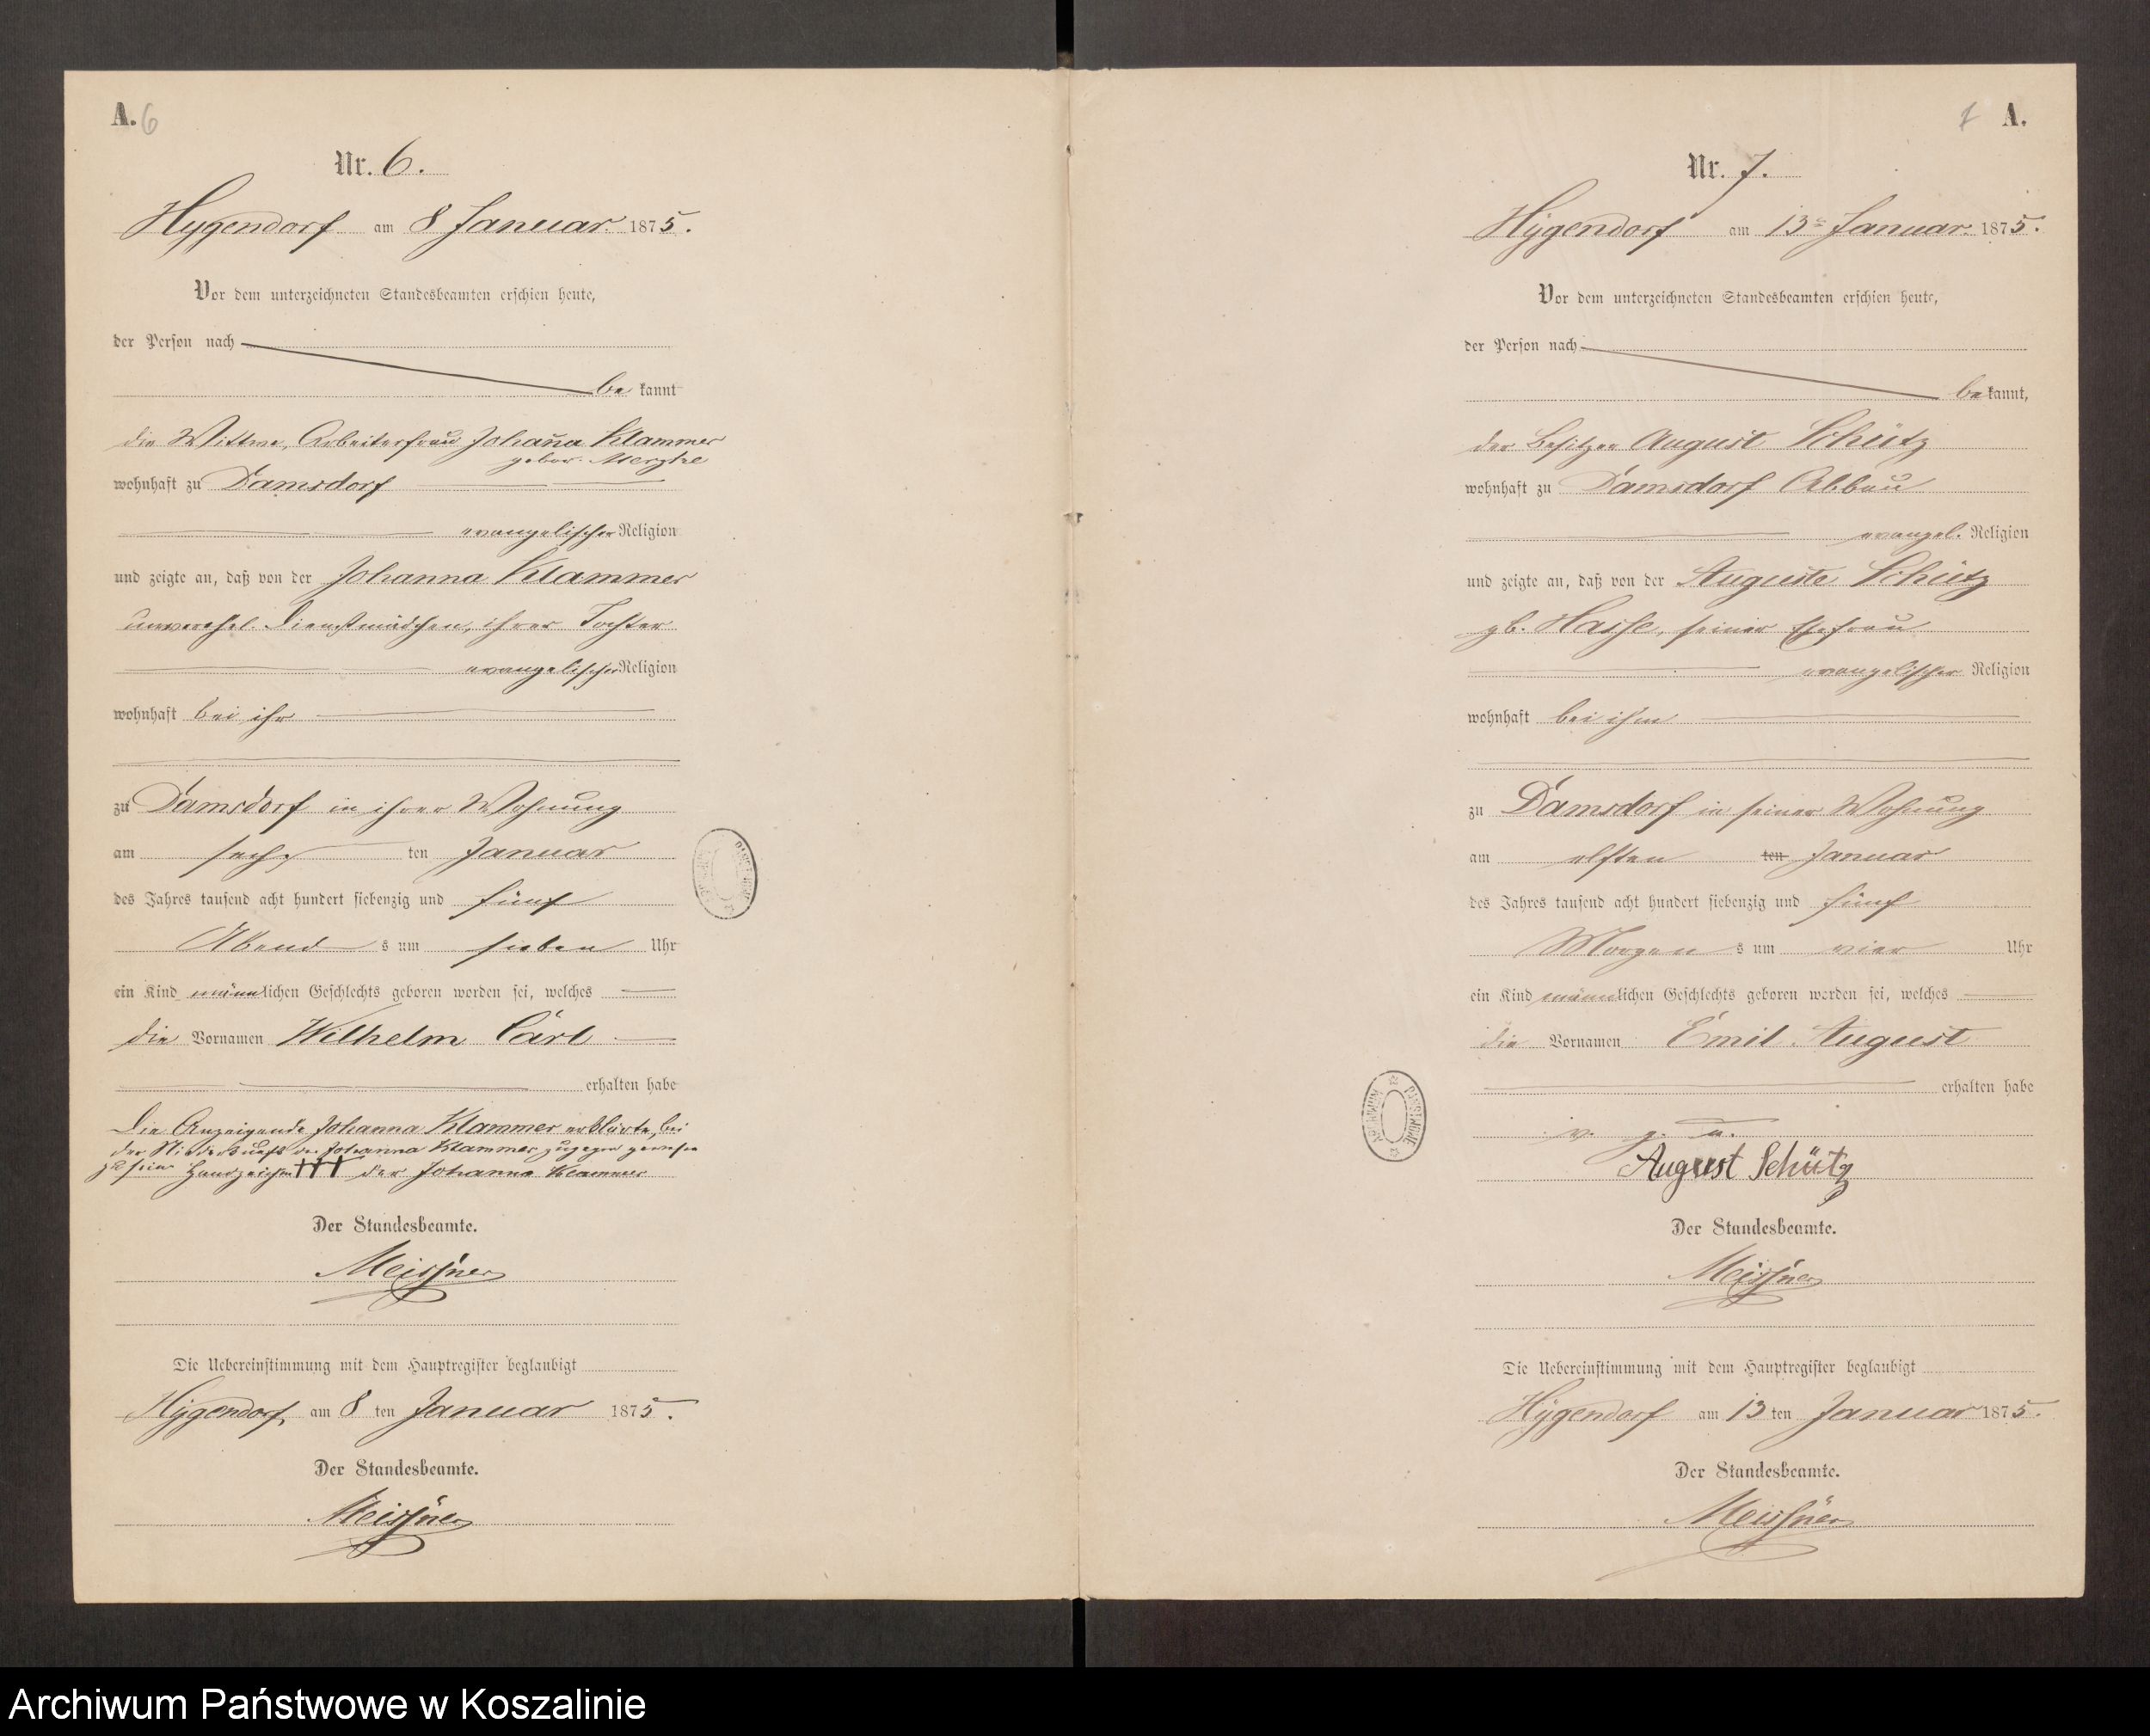 A. 6
Nr. 6.
Hygendorf am 8 Januar 1875.
Vor dem unterzeichneten Standesbeamten erschien heute,
der Person nach
be kannt
die Wittwe, Arbeiterfrau Johanna Klammer
gebor.
wohnhaft zu Damsdorf
evangelischer Religion
und zeigte an, daß von der Johanna Klammer
unverehel. Dienstmädchen, ihrer Tochter
evangelischer Religion
wohnhaft bei ihr
zu Damsdorf in ihrer Wohnung
am sechs ten Januar
des Jahres tausend acht hundert siebenzig und fünf
Abend s um sieben Uhr
ein Kind männlichen Geschlechts geboren worden sei, welches
die Vornamen Wilhelm Carl
erhalten habe
Die Anzeigende Johanna Klammer erklärte, bei
der Niederkunft der Johanna Klammer zugegen gewesen
zu sein Handzeichen +++ der Johanna Klammer
Der Standesbeamte.
Meissner
Die Uebereinstimmung mit dem Hauptregister beglaubigt
Hygendorf, am 8 ten Januar 1875.
Der Standesbeamte.
Meissner
7 A.
Nr. 7.
Hygendorf am 13 Januar 1875.
Vor dem unterzeichneten Standesbeamten erschien heute,
der Person nach
be kannt,
der Besitzer August Schütz
wohnhaft zu Damsdorf Abbau
evangel. Religion
und zeigte an, daß von der Auguste Schütz
gb. Hasse, seiner Ehefrau
evangelischer Religion
wohnhaft bei ihm
zu Damsdorf in seiner Wohnung
am elften ten Januar
des Jahres tausend acht hundert siebenzig und fünf
Morgen s um vier Uhr
ein Kind männlichen Geschlechts geboren worden sei, welches
die Vornamen Emil August
erhalten habe
v. g. u.
August Schütz
Der Standesbeamte.
Meissner
Die Uebereinstimmung mit dem Hauptregister beglaubigt
Hygendorf am 13 ten Januar 1875.
Der Standesbeamte.
Meissner
ARCHIWUM PAŃSTWOWE
Archiwum Państwowe w Koszalinie